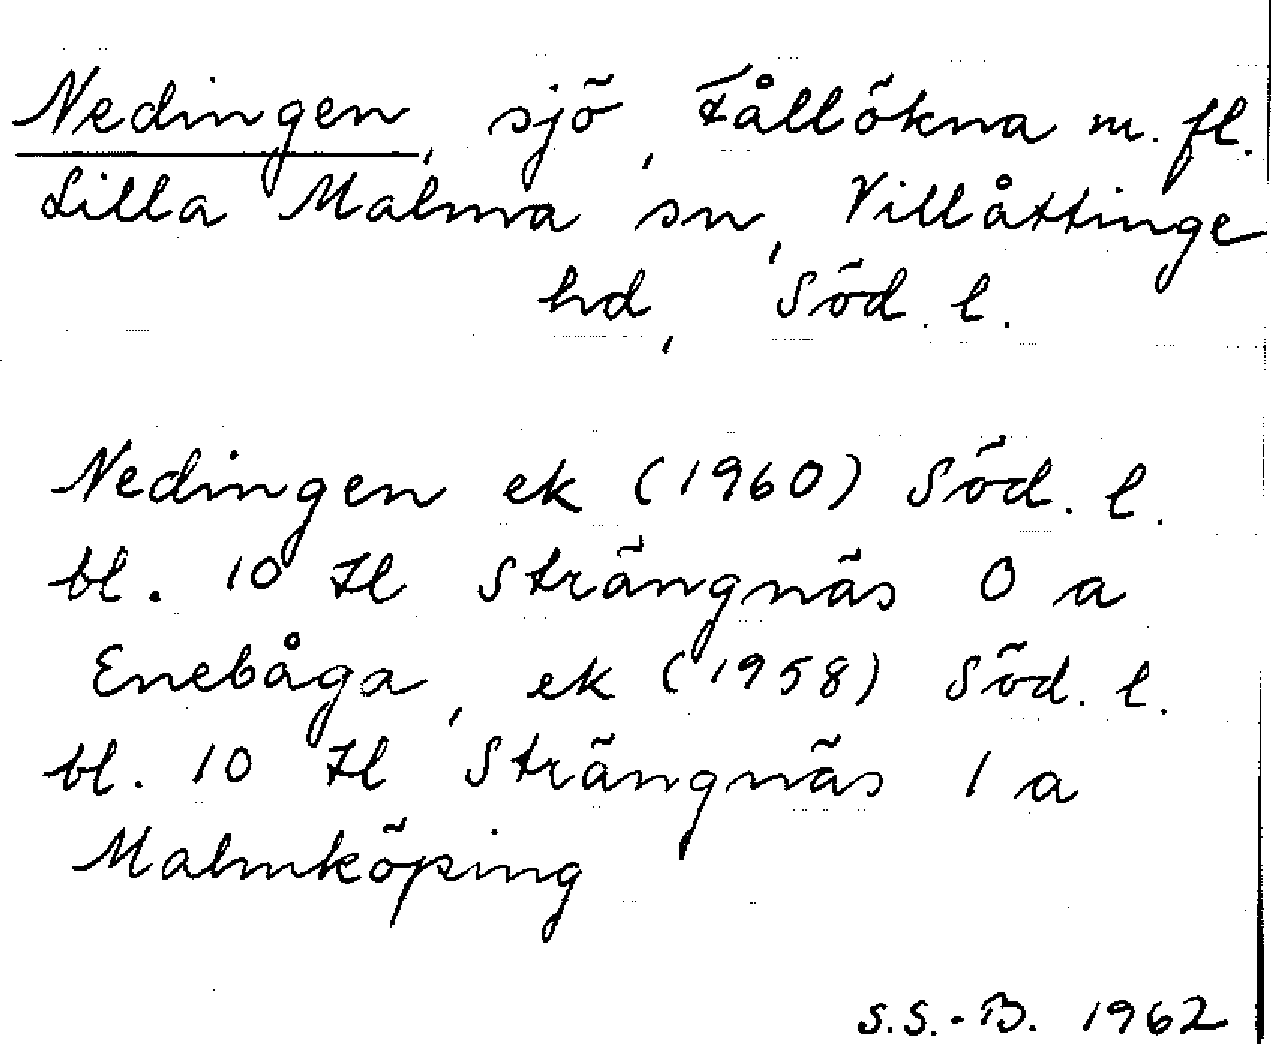 Nedingen, sjö, Fållökna m. fl.
Lilla Malma sn, Villåttinge
hd, Söd. l.
Nedingen ek (1960) Söd. l.
bl. 10 H Strängnäs 0 a
Enebåga, ek (1958) Söd. l.
bl. 10 H Strängnäs 1 a
Malmköping
S.S.-B. 1962